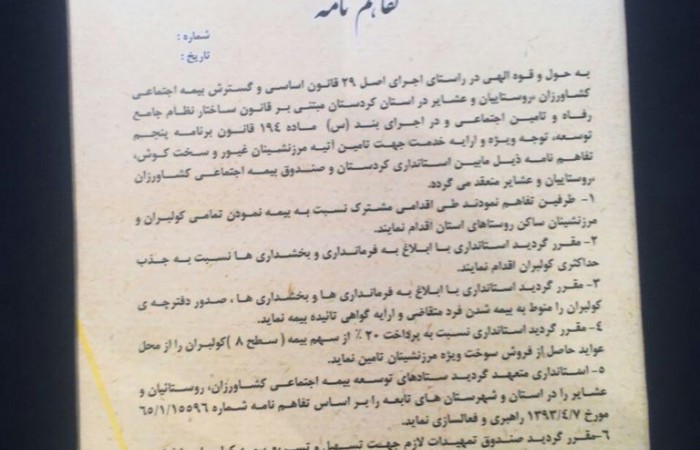 تفاهم نامه
شماره :
تاریخ :
به حول و قوه الهی در راستای اجرای اصل ۲۹ قانون اساسی و گسترش بیمه اجتماعی
کشاورزان ،روستاییان و عشایر در استان کردستان مبتنی بر قانون ساختار نظام جامع
رفاه و تامین اجتماعی و در اجرای بند (س) ماده ۱۹۴ قانون برنامه پنجم
توسعه، توجه ویژه و ارایه خدمت جهت تامین آتیه مرزنشینان غیور و سخت کوش،
تفاهم نامه ذیل مابین استانداری کردستان و صندوق بیمه اجتماعی کشاورزان
،روستاییان و عشایر منعقد می گردد.
۱- طرفین تفاهم نمودند طی اقدامی مشترک نسبت به بیمه نمودن تمامی کولبران و
مرزنشینان ساکن روستاهای استان اقدام نمایند.
۲- مقرر گردید استانداری با ابلاغ به فرمانداری و بخشداری ها نسبت به جذب
حداکثری کولبران اقدام نمایند.
۳- مقرر گردید استانداری با ابلاغ به فرمانداری ها و بخشداری ها ، صدور دفترچه ی
کولبران را منوط به بیمه شدن فرد متقاضی و ارایه گواهی تائیده بیمه نماید.
۴- مقرر گردید استانداری نسبت به پرداخت ۲۰ ٪ از سهم بیمه ( سطح ۸ )کولبران را از محل
عواید حاصل از فروش سوخت ویژه مرزنشینان تامین نماید.
۵- استانداری متعهد گردید ستادهای توسعه بیمه اجتماعی کشاورزان، روستائیان و
عشایر را در استان و شهرستان های تابعه را بر اساس تفاهم نامه شماره ۶۵/۱/۱۵۵۹۶
مورخ ۱۳۹۳/۴/۷ راهبری و فعالسازی نماید.
۶-مقرر گردید صندوق تمهیدات لازم جهت تسهیل و